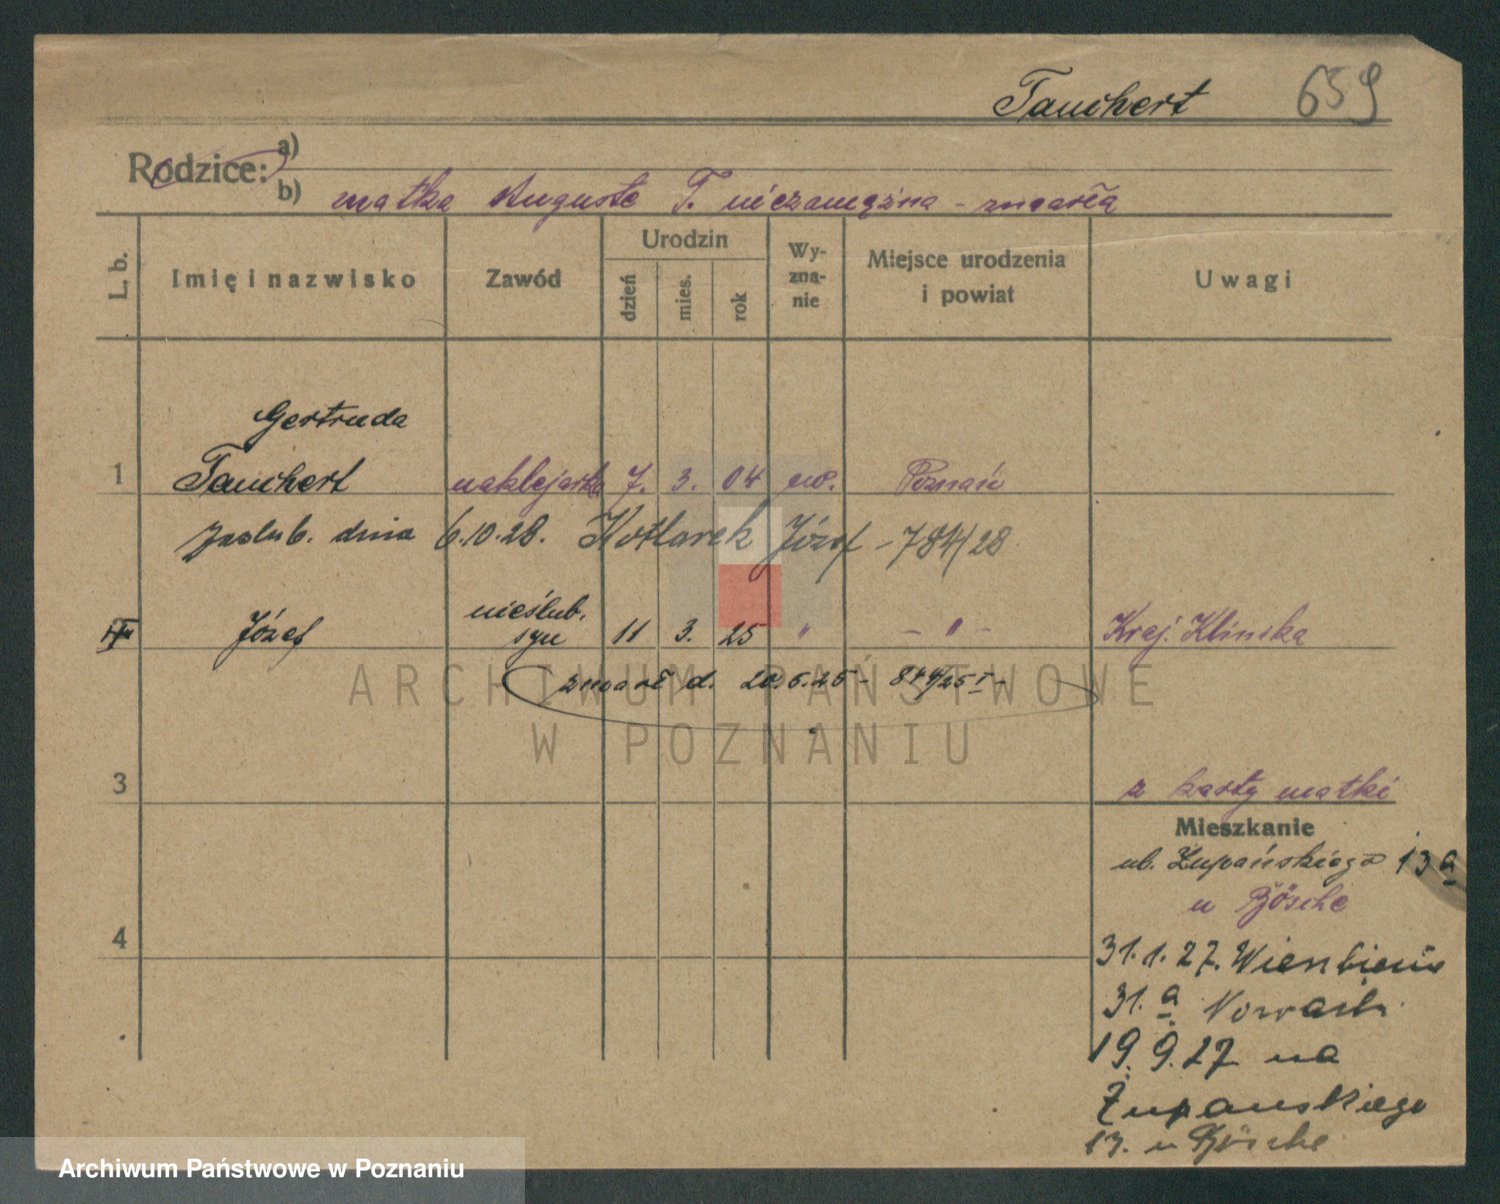 Tauchert 659
Rodzice: a)
b) matka Auguste T. niezamężna - zmarła
L. b. Imię i nazwisko Zawód Urodzin dzień mies. rok Wyznanie Miejsce urodzenia i powiat Uwagi
Gertruda
1 Tauchert naklejarka 7. 3. 04 ew. Poznań
zaślub. dnia 6.10.28. Kotlarek Józef - 784/28
nieślub.
Józef syn 11 3. 25 " - " - Kraj. Klinika
zmarł d. 20.5.25 - 844/25 I -
ARCHIWUM PAŃSTWOWE
W POZNANIU
3 z karty matki
Mieszkanie
ul. Żupańskiego 13 a
u Bösche
4 31.1.27.
31. a Nowak
19.9.27 na
Żupańskiego
13. u Bösche
Archiwum Państwowe w Poznaniu